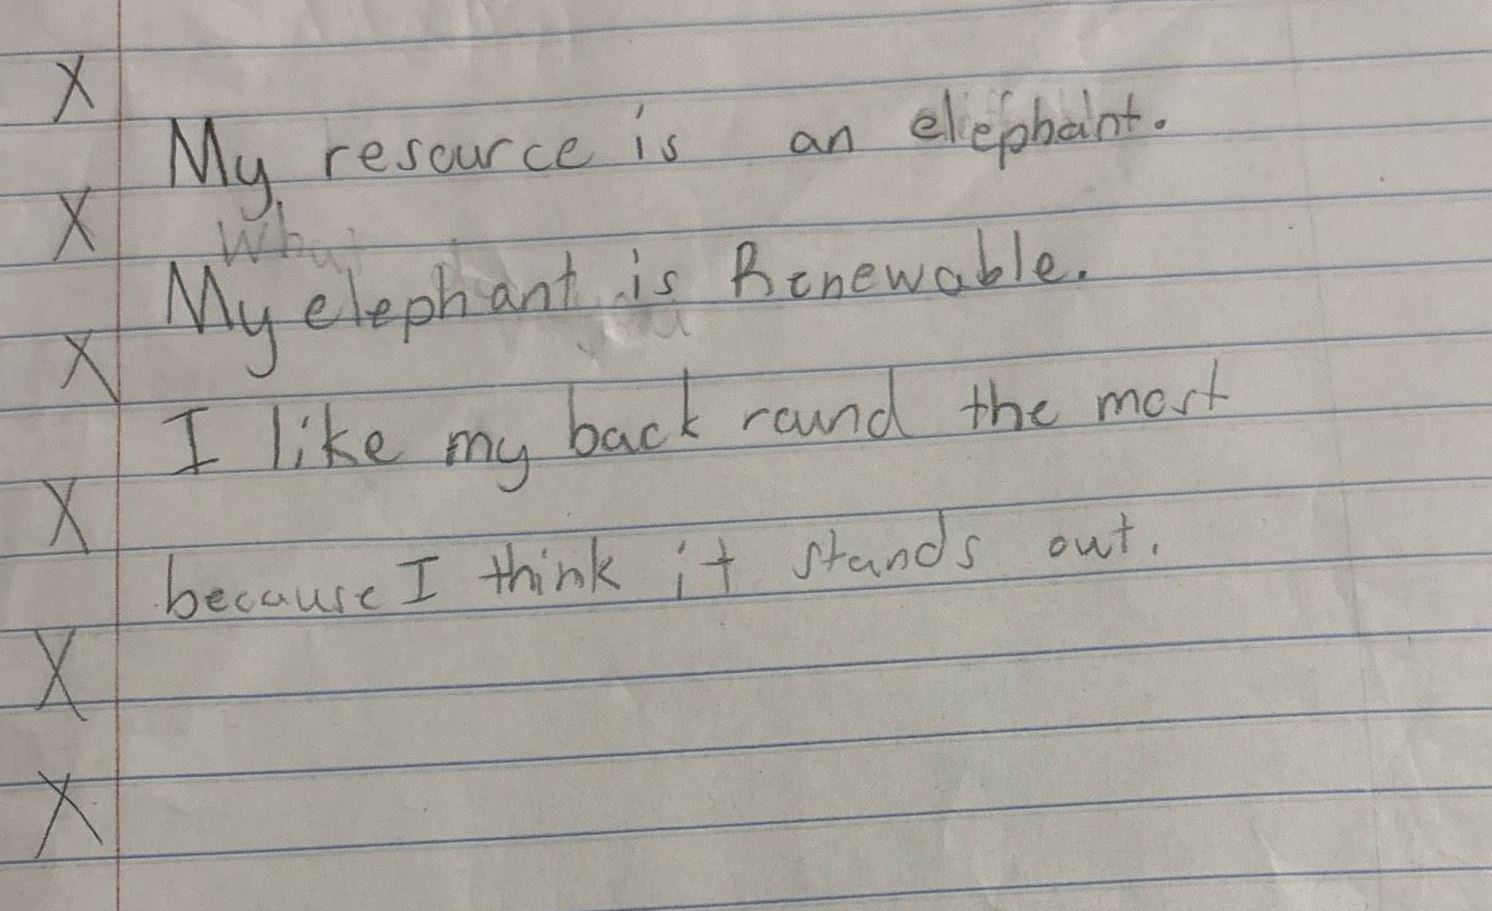 X
My resource is an elephant.
X
Wha
My elephant is Renewable.
X
I like my back round the most
X
because I think it stands out.
X
X